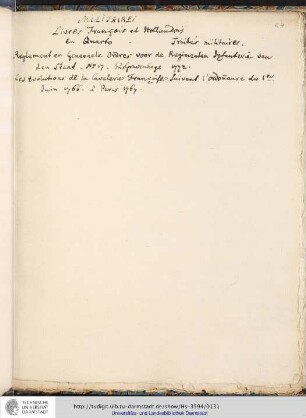 MILITAIRES
Livres François et Hollandois
en Quarto . Traités militaires.
Reglement en Generaale Orders voor de Regimenten Infanterie van
den Staat . N.º 17. 's Gravenhage 1772.
Les evolutions de la Cavalerie Françoise suivant l'ordonance du 1.er
Juin 1766. à Paris 1767.
TECHNISCHE
UNIVERSITÄT
DARMSTADT
http://tudigit.ulb.tu-darmstadt.de/show/Hs-3594/0131
Universitäts- und Landesbibliothek Darmstadt